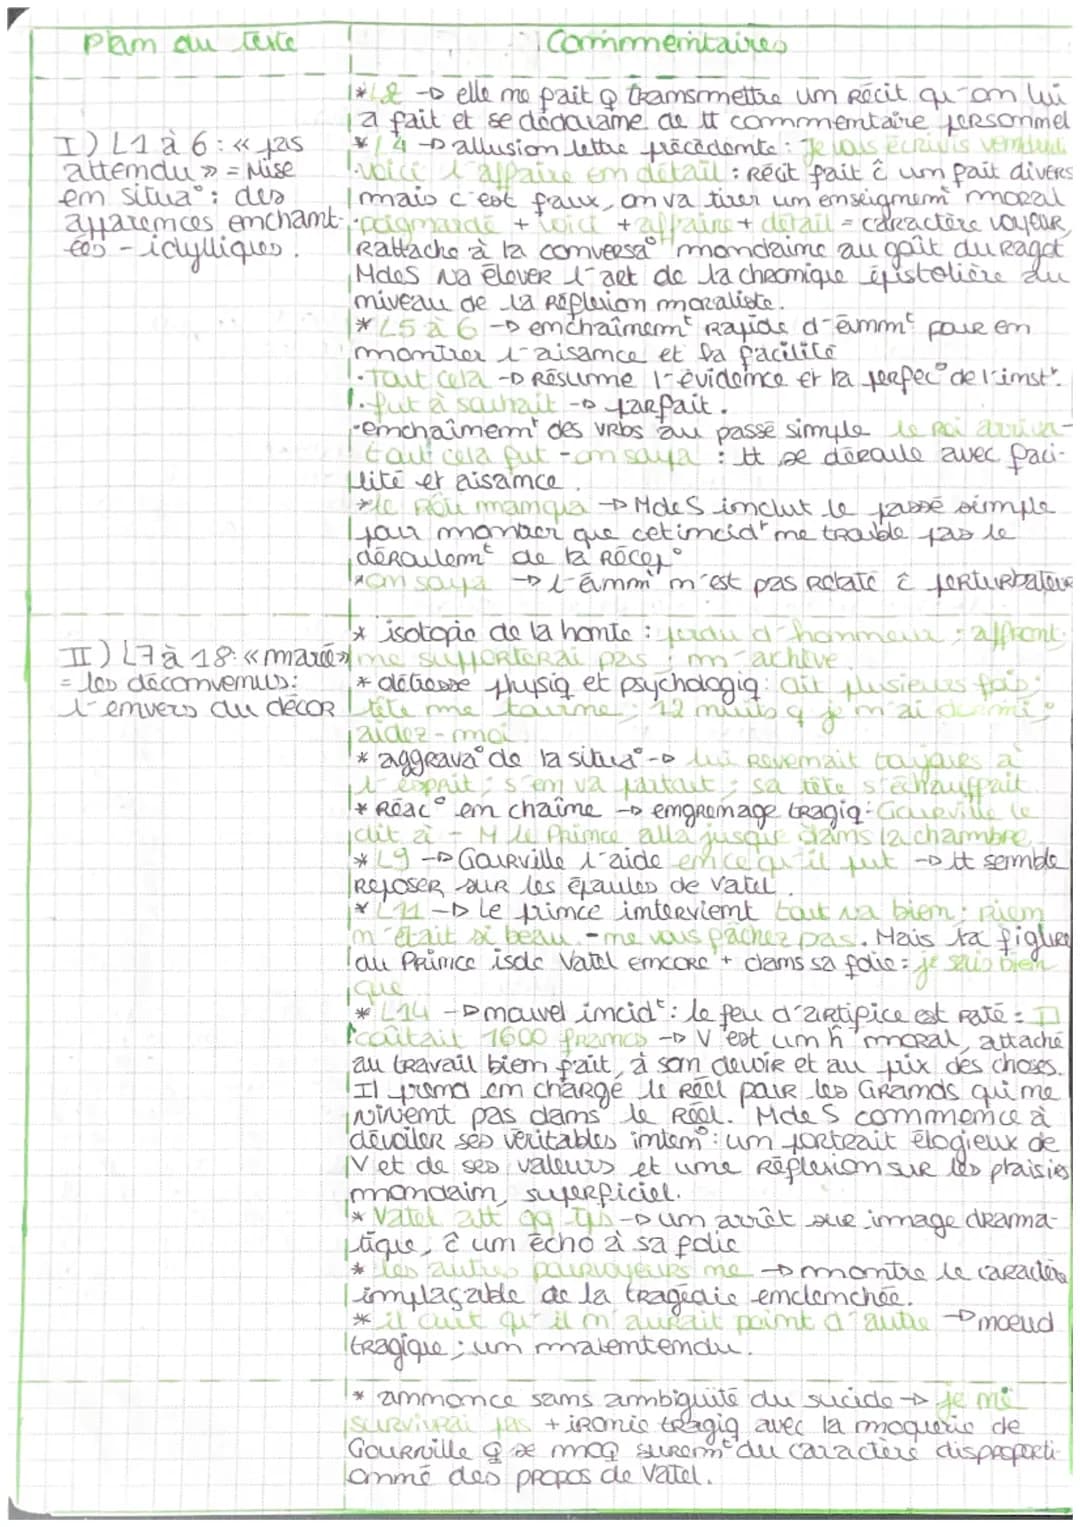 Plan du texte
Commentaires
*L2 → elle ne fait q transmettre un récit qu'on lui
a fait et se dédouane de tt commentaire personnel
I) L1 à 6 : « pas
attendu » = Mise
en situa° : des
apparences enchant-
ées - idylliques.
* L4 → allusion lettre précédente : Je vous écrivis vendredi
• voici l'affaire en détail : Récit fait ĉ un fait divers
mais c'est faux, on va tirer un enseignemt moral
• poignardé + voici + affaire + détail = caractère voyeur,
Rattache à la conversa° mondaine au goût du Ragot
MdeS va élever l'art de la chronique épistolière au
niveau de la Réflexion moraliste.
* L5 à 6 → enchaînemt Rapide d'évnmt pour en
montrer l'aisance et la facilité
• Tout cela → Résume l'évidence et la perfec° de l'inst't.
• fut à souhait → parfait.
• enchaînemt des vrbs au passé simple le Roi arriva -
tout cela fut - on soupa : tt se déroule avec faci-
lité et aisance.
* le Rôti manqua → MdeS inclut le passé simple
pour montrer que cet incidt ne trouble pas le
déroulemt de la Récep°
* on soupa → l'évnmt n'est pas Relaté ĉ perturbateur
II) L7 à 18 : « marée »
= les déconvenues :
l'envers du décor
* isotopie de la honte : perdu d'honneur ; affront
ne supporterai pas ; m'achève
* détresse physiq et psychologiq : dit plusieurs fois ;
tête me tourne ; 12 nuits q je n'ai dormi ;
aidez-moi
* aggrava° de la situa° → lui Revenait toujours à
l'esprit ; s'en va partout ; sa tête s'échauffait.
* Réac° en chaîne → engrenage tragiq : Gourville le
dit à - M le Prince alla jusque dans la chambre
* L9 → Gourville l'aide en ce qu'il put → tt semble
Reposer sur les épaules de Vatel.
* L11 → Le prince intervient tout va bien ; Rien
n'était si beau - ne vous fâchez pas. Mais la figure
du Prince isole Vatel encore + dans sa folie : je sais bien
que
* L14 → nouvel incidt : le feu d'artifice est Raté : Il
coûtait 1600 francs → V est un h moral, attaché
au travail bien fait, à son devoir et au prix des choses.
Il prend en charge le Réel pour les Grands qui ne
vivent pas dans le Réel. Mde S commence à
dévoiler ses véritables inten° : un portrait élogieux de
V et de ses valeurs et une Réflexion sur les plaisirs
mondain, superficiel.
* Vatel att qq tps → un arrêt sur image drama-
tique, ĉ un écho à sa folie
* les autres pourvoyeurs ne → montre le caractère
implaçable de la tragédie enclenchée.
* il crut qu'il n'aurait point d'autre → nœud
tragique ; un malentendu.
* annonce sans ambiguité du sucide → je ne
survivrai pas + ironie tragiq avec la moquerie de
Gourville q se moq suremt du caractère disproporti-
onné des propos de Vatel.